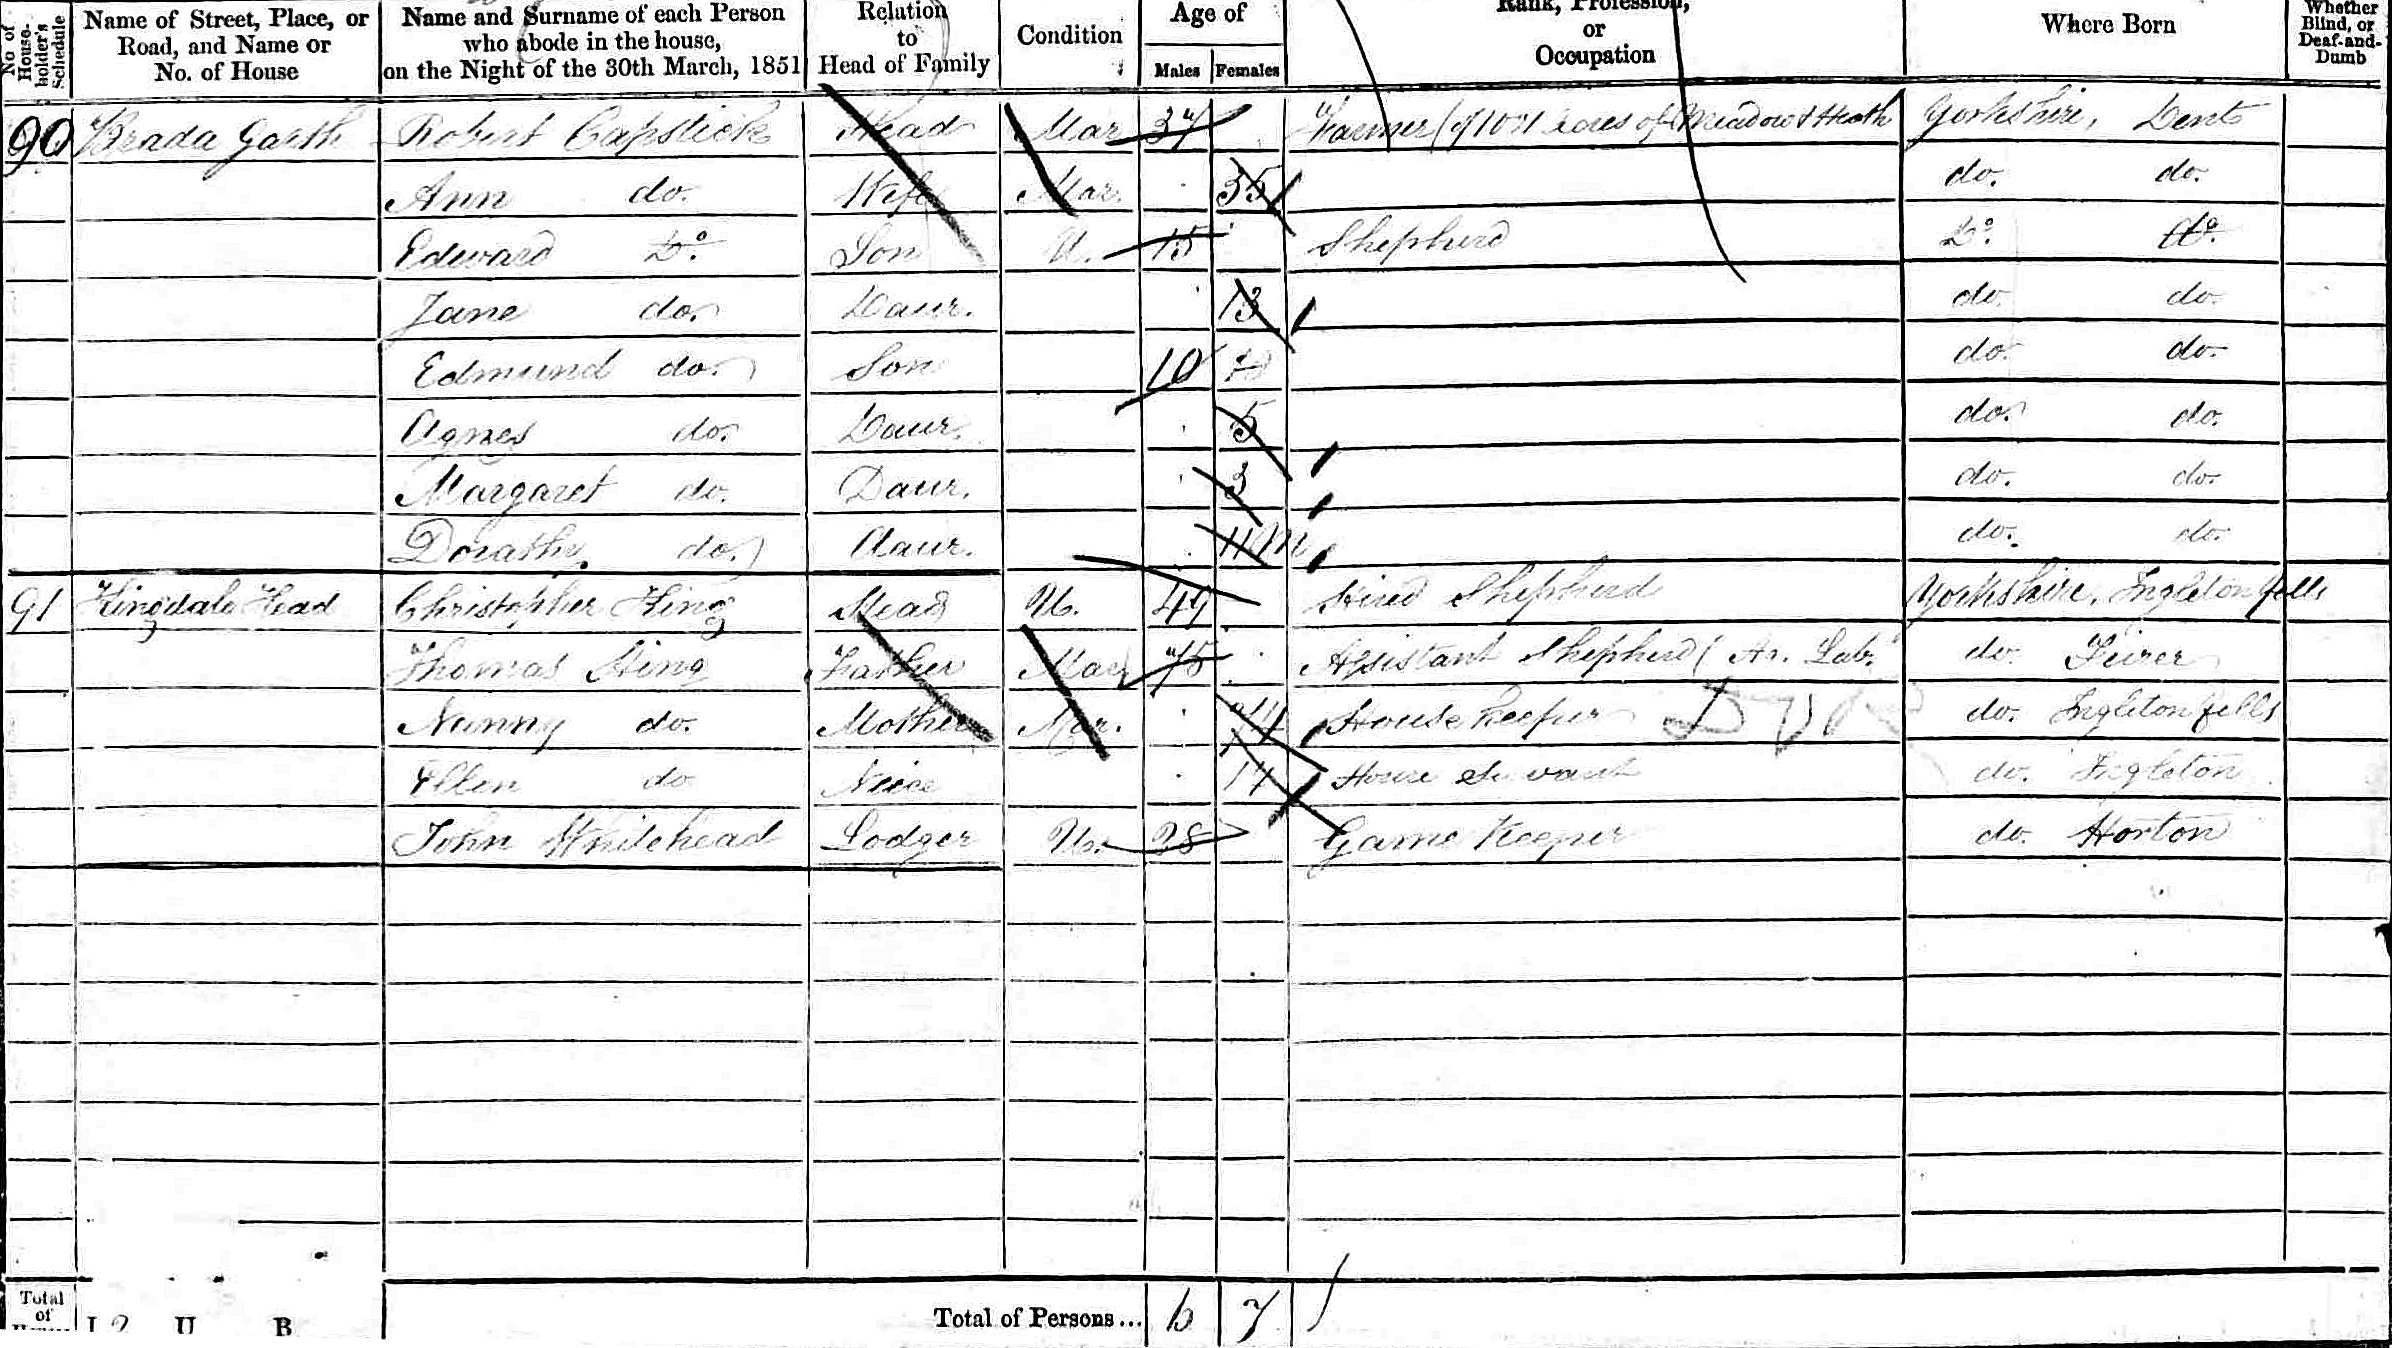 No of House-holder's Schedule | Name of Street, Place, or Road, and Name or No. of House | Name and Surname of each Person who abode in the house, on the Night of the 30th March, 1851 | Relation to Head of Family | Condition | Age of Males | Females | Rank, Profession, or Occupation | Where Born | Whether Blind, or Deaf-and-Dumb
90 Brada Garth Robert Capstick Head Mar 37 Farmer (of acres of Meadow & Heath Yorkshire, Dent
Ann do. Wife Mar. 35 do. do.
Edward Do. Son U. 15 Shepherd Do. do.
Jane do. Daur. 13 do. do.
Edmund do. Son 10 do. do.
Agnes do. Daur. 5 do. do.
Margaret do. Daur. 3 do. do.
Dorathy do. daur. 11 M do. do.
91 Kingdale Head Christopher King Head U. 49 Hired Shepherd Yorkshire, Ingleton fells
Thomas King Father Mar 75 Assistant Shepherd (Ar. Lab. do.
Nanny do. Mother Mar. 74 House Keeper do. Ingleton fells
Ellen do Niece House Servant do. Ingleton
John Whitehead Lodger Un. 28 Game Keeper do. Horton
Total of I U B Total of Persons... 6 7